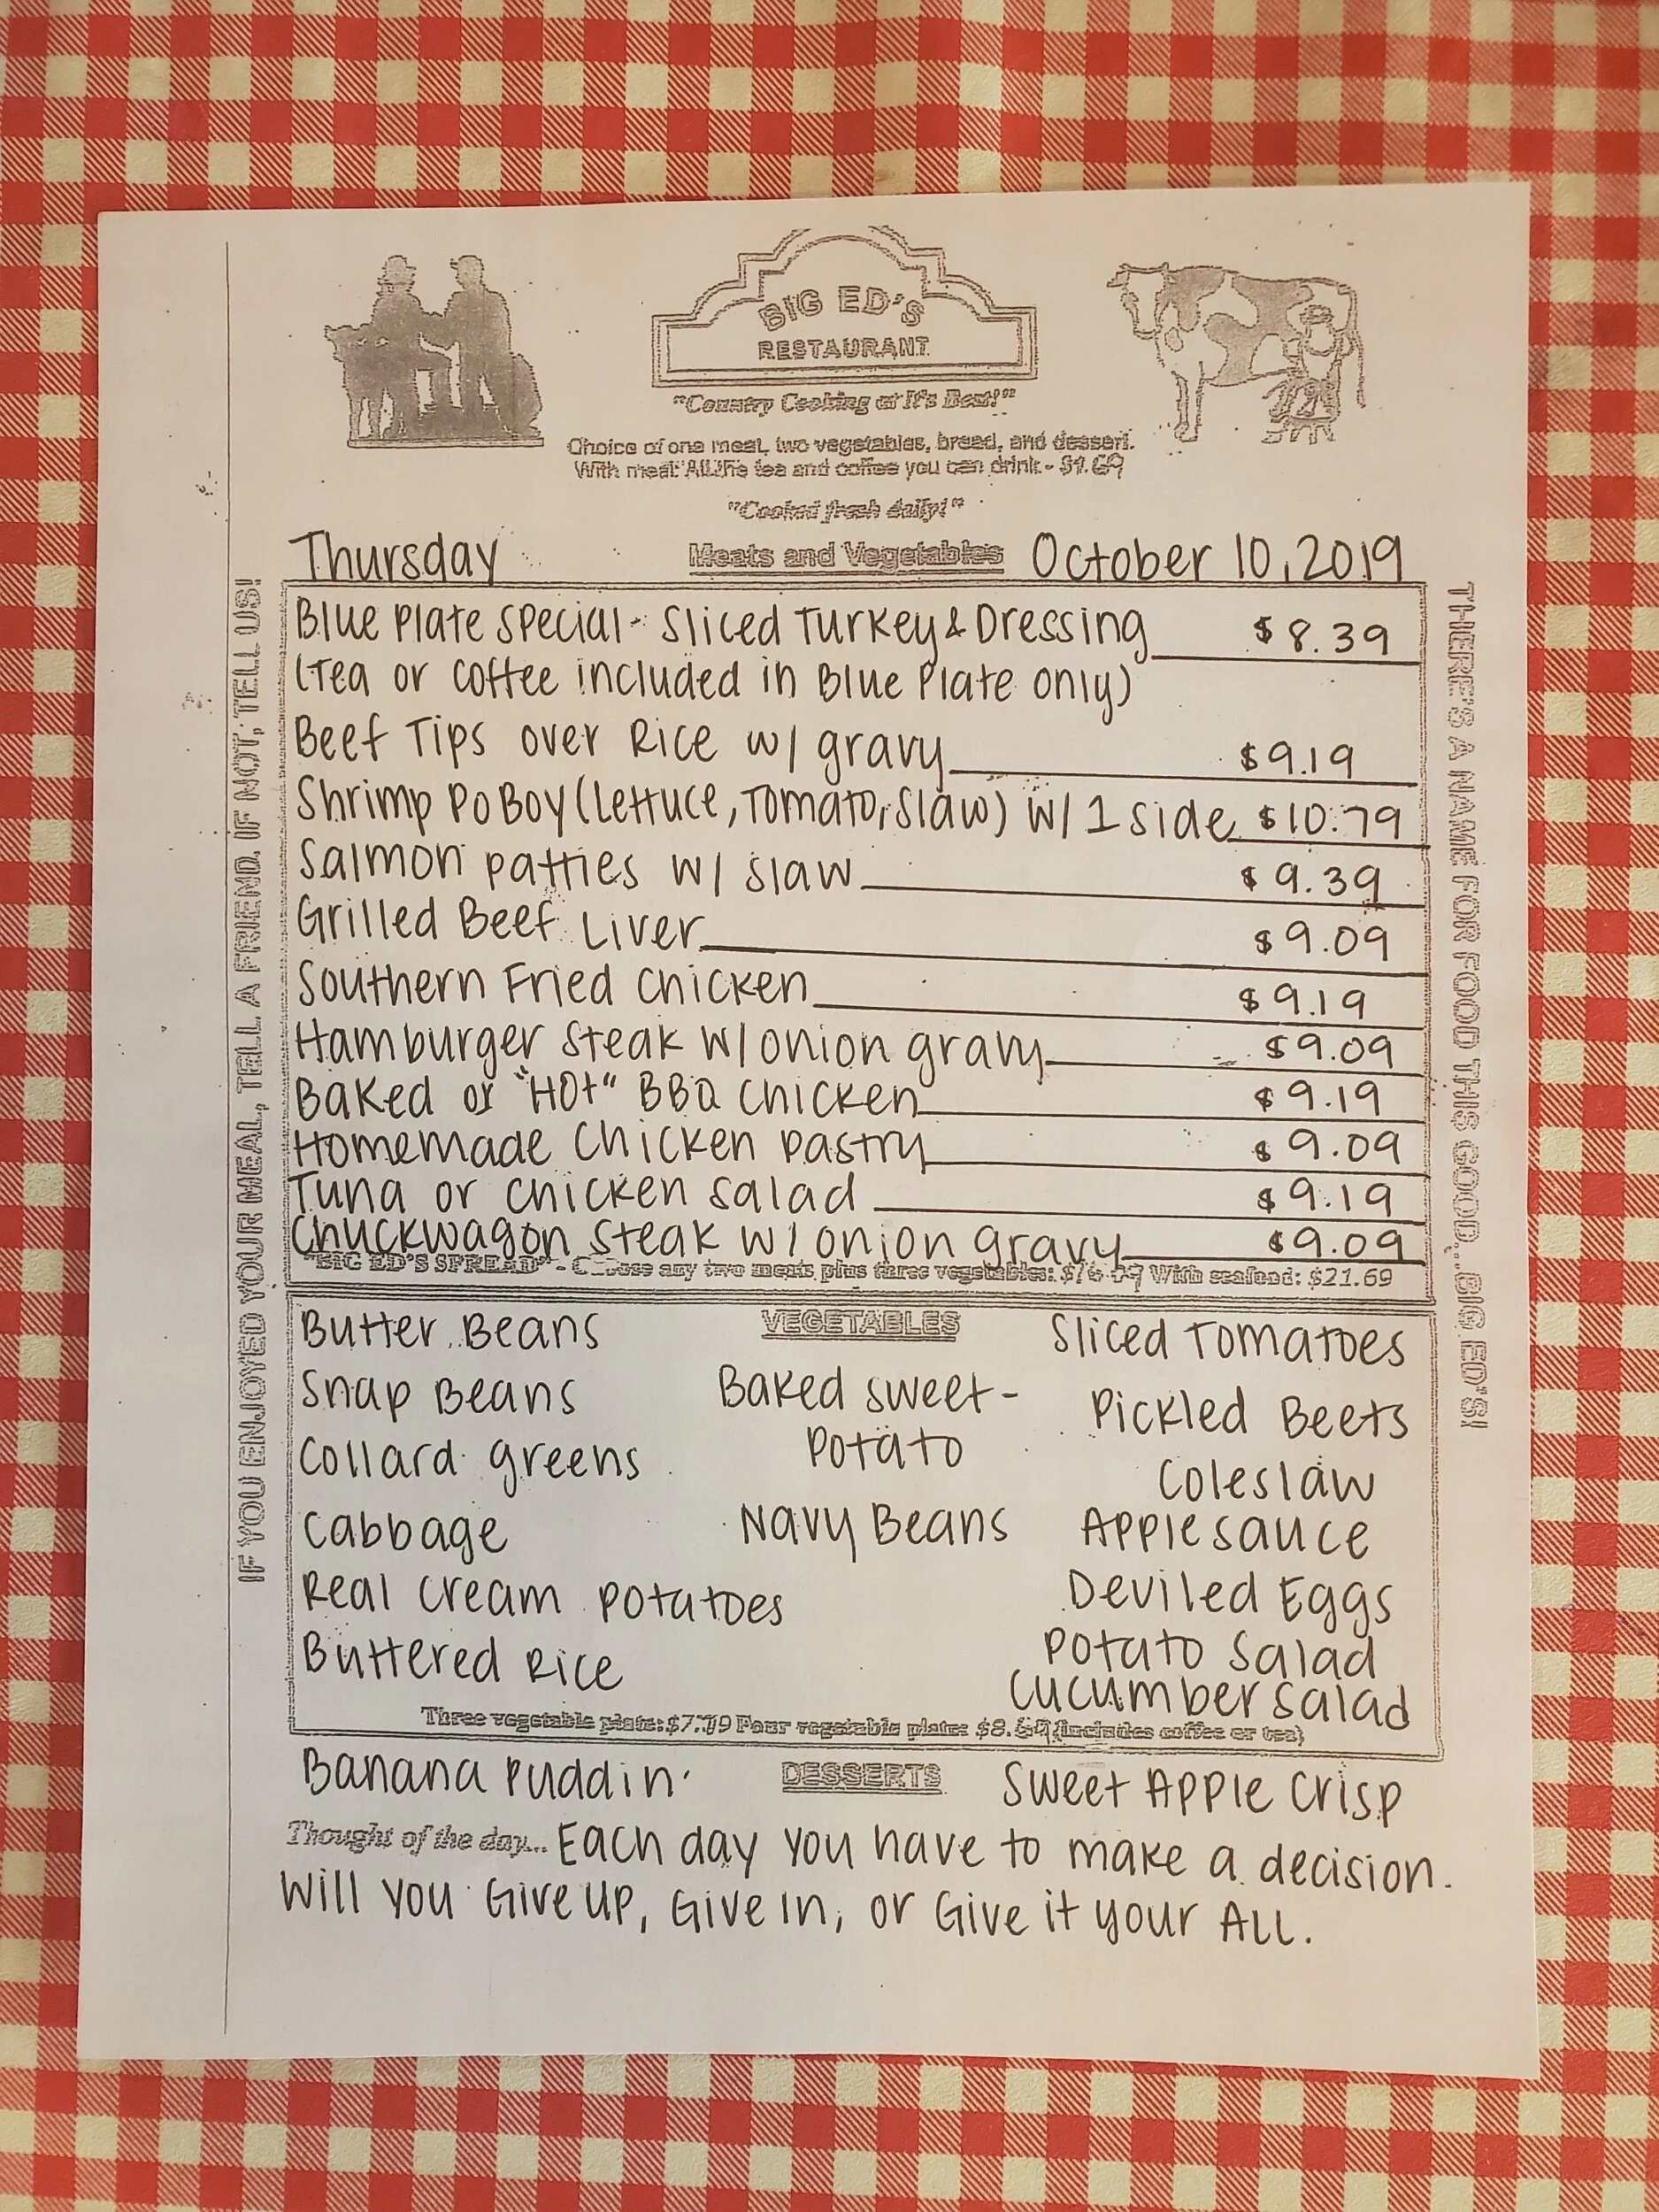 BIG ED'S
RESTAURANT
"Country Cooking at It's Best!"
Choice of one meat, two vegetables, bread, and dessert.
With meat: All the tea and coffee you can drink - $1.69
"Cooked fresh daily!"
Thursday Meats and Vegetables October 10, 2019
Blue Plate Special - Sliced Turkey & Dressing $8.39
(Tea or Coffee included in Blue Plate only)
Beef Tips over Rice w/ gravy $9.19
Shrimp PoBoy (Lettuce, Tomato, Slaw) w/ 1 side $10.79
Salmon patties w/ slaw $9.39
Grilled Beef Liver $9.09
Southern Fried Chicken $9.19
Hamburger Steak w/ onion gravy $9.09
Baked or "Hot" BBQ Chicken $9.19
Homemade Chicken Pastry $9.09
Tuna or Chicken Salad $9.19
Chuckwagon Steak w/ onion gravy $9.09
"BIG ED'S SPREAD" - Choose any two meats plus three vegetables: With seafood: $21.69
VEGETABLES
Butter Beans
Snap Beans
Collard greens
Cabbage
Real Cream Potatoes
Buttered Rice
Baked sweet-
Potato
Navy Beans
Sliced Tomatoes
Pickled Beets
Coleslaw
Applesauce
Deviled Eggs
Potato Salad
Cucumber Salad
Three vegetable plate: Four vegetable plate: (includes coffee or tea)
Banana Puddin' DESSERTS Sweet Apple Crisp
Thought of the day... Each day you have to make a decision.
Will you Give up, Give in, or Give it your ALL.
IF YOU ENJOYED YOUR MEAL, TELL A FRIEND. IF NOT, TELL US!
THERE'S A NAME FOR FOOD THIS GOOD... BIG ED'S!